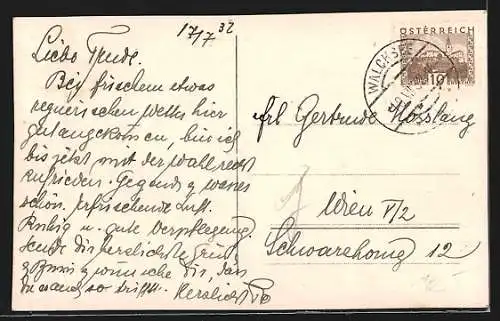 17/7 32
Liebe Trude.
Bei frischem etwas
regnerischen Wetter hier
gut angekommen, bin ich
bis jetzt mit der Wahl recht
zufrieden. Gegend
schön. Erfrischende Luft.
Ruhig u. gute Verpflegung.
Sende dir herzlichste Grüße
wünsche dir, daß
Herzlichst
ÖSTERREICH
10
WALCHS
Frl Gertrude Nosslang
Wien V/2
12